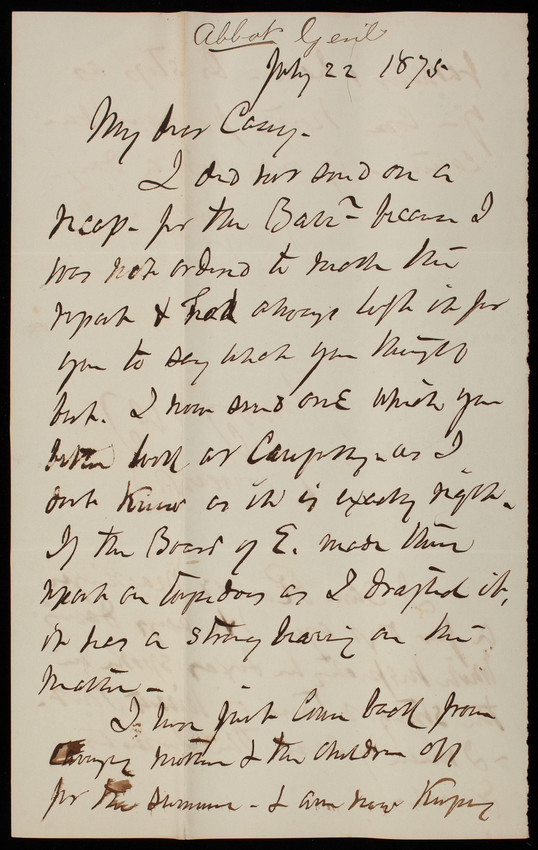 Abbot Genl
July 22 1875
My dear Casey -
I did not send on a
recap. for the Batt<sup>n</sup> - because I
was not ordered to make the
report & had always left it for
you to say what you thought
best. I now send one which you
better look at carefully - as I
dont know as it is exactly right.
If the Board of E. made their
report on torpedoes as I drafted it,
it has a strong bearing on the
matter -
I have just come back from
mother & the children off
for the summer - & am now keeping